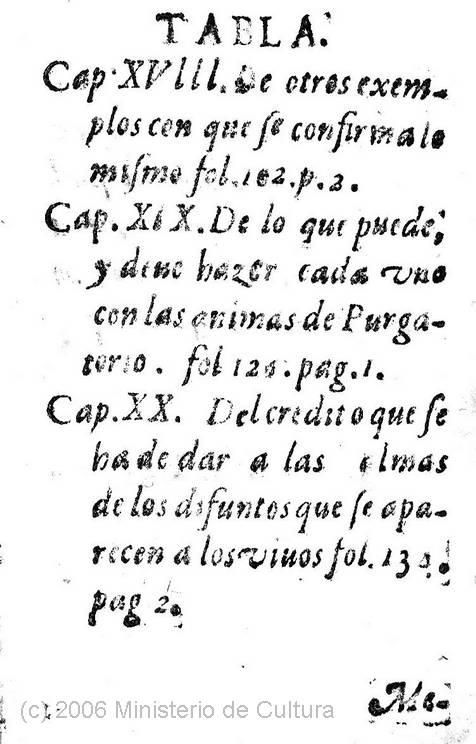 TABLA.
Cap. XVIII. De otros exem-
plos con que se confirma lo
mismo fol. 102. p. 2.
Cap. XIX. De lo que puede,
y deue hazer cada vno
con las animas de Purga-
torio. fol pag. 1.
Cap. XX. Del credito que se
ha de dar a las almas
de los difuntos que se apa-
recen a los viuos fol.
pag 2.
Me-
(c) 2006 Ministerio de Cultura